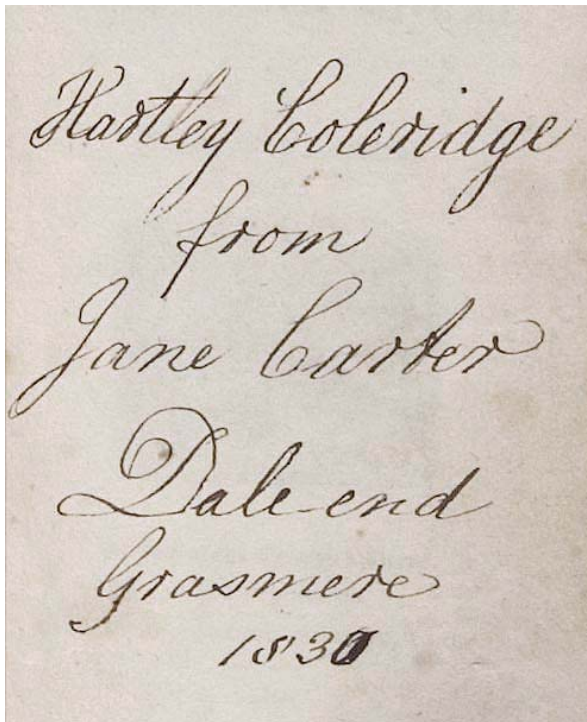 Hartley Coleridge
from
Jane Carter
Dale end
Grasmere
1830